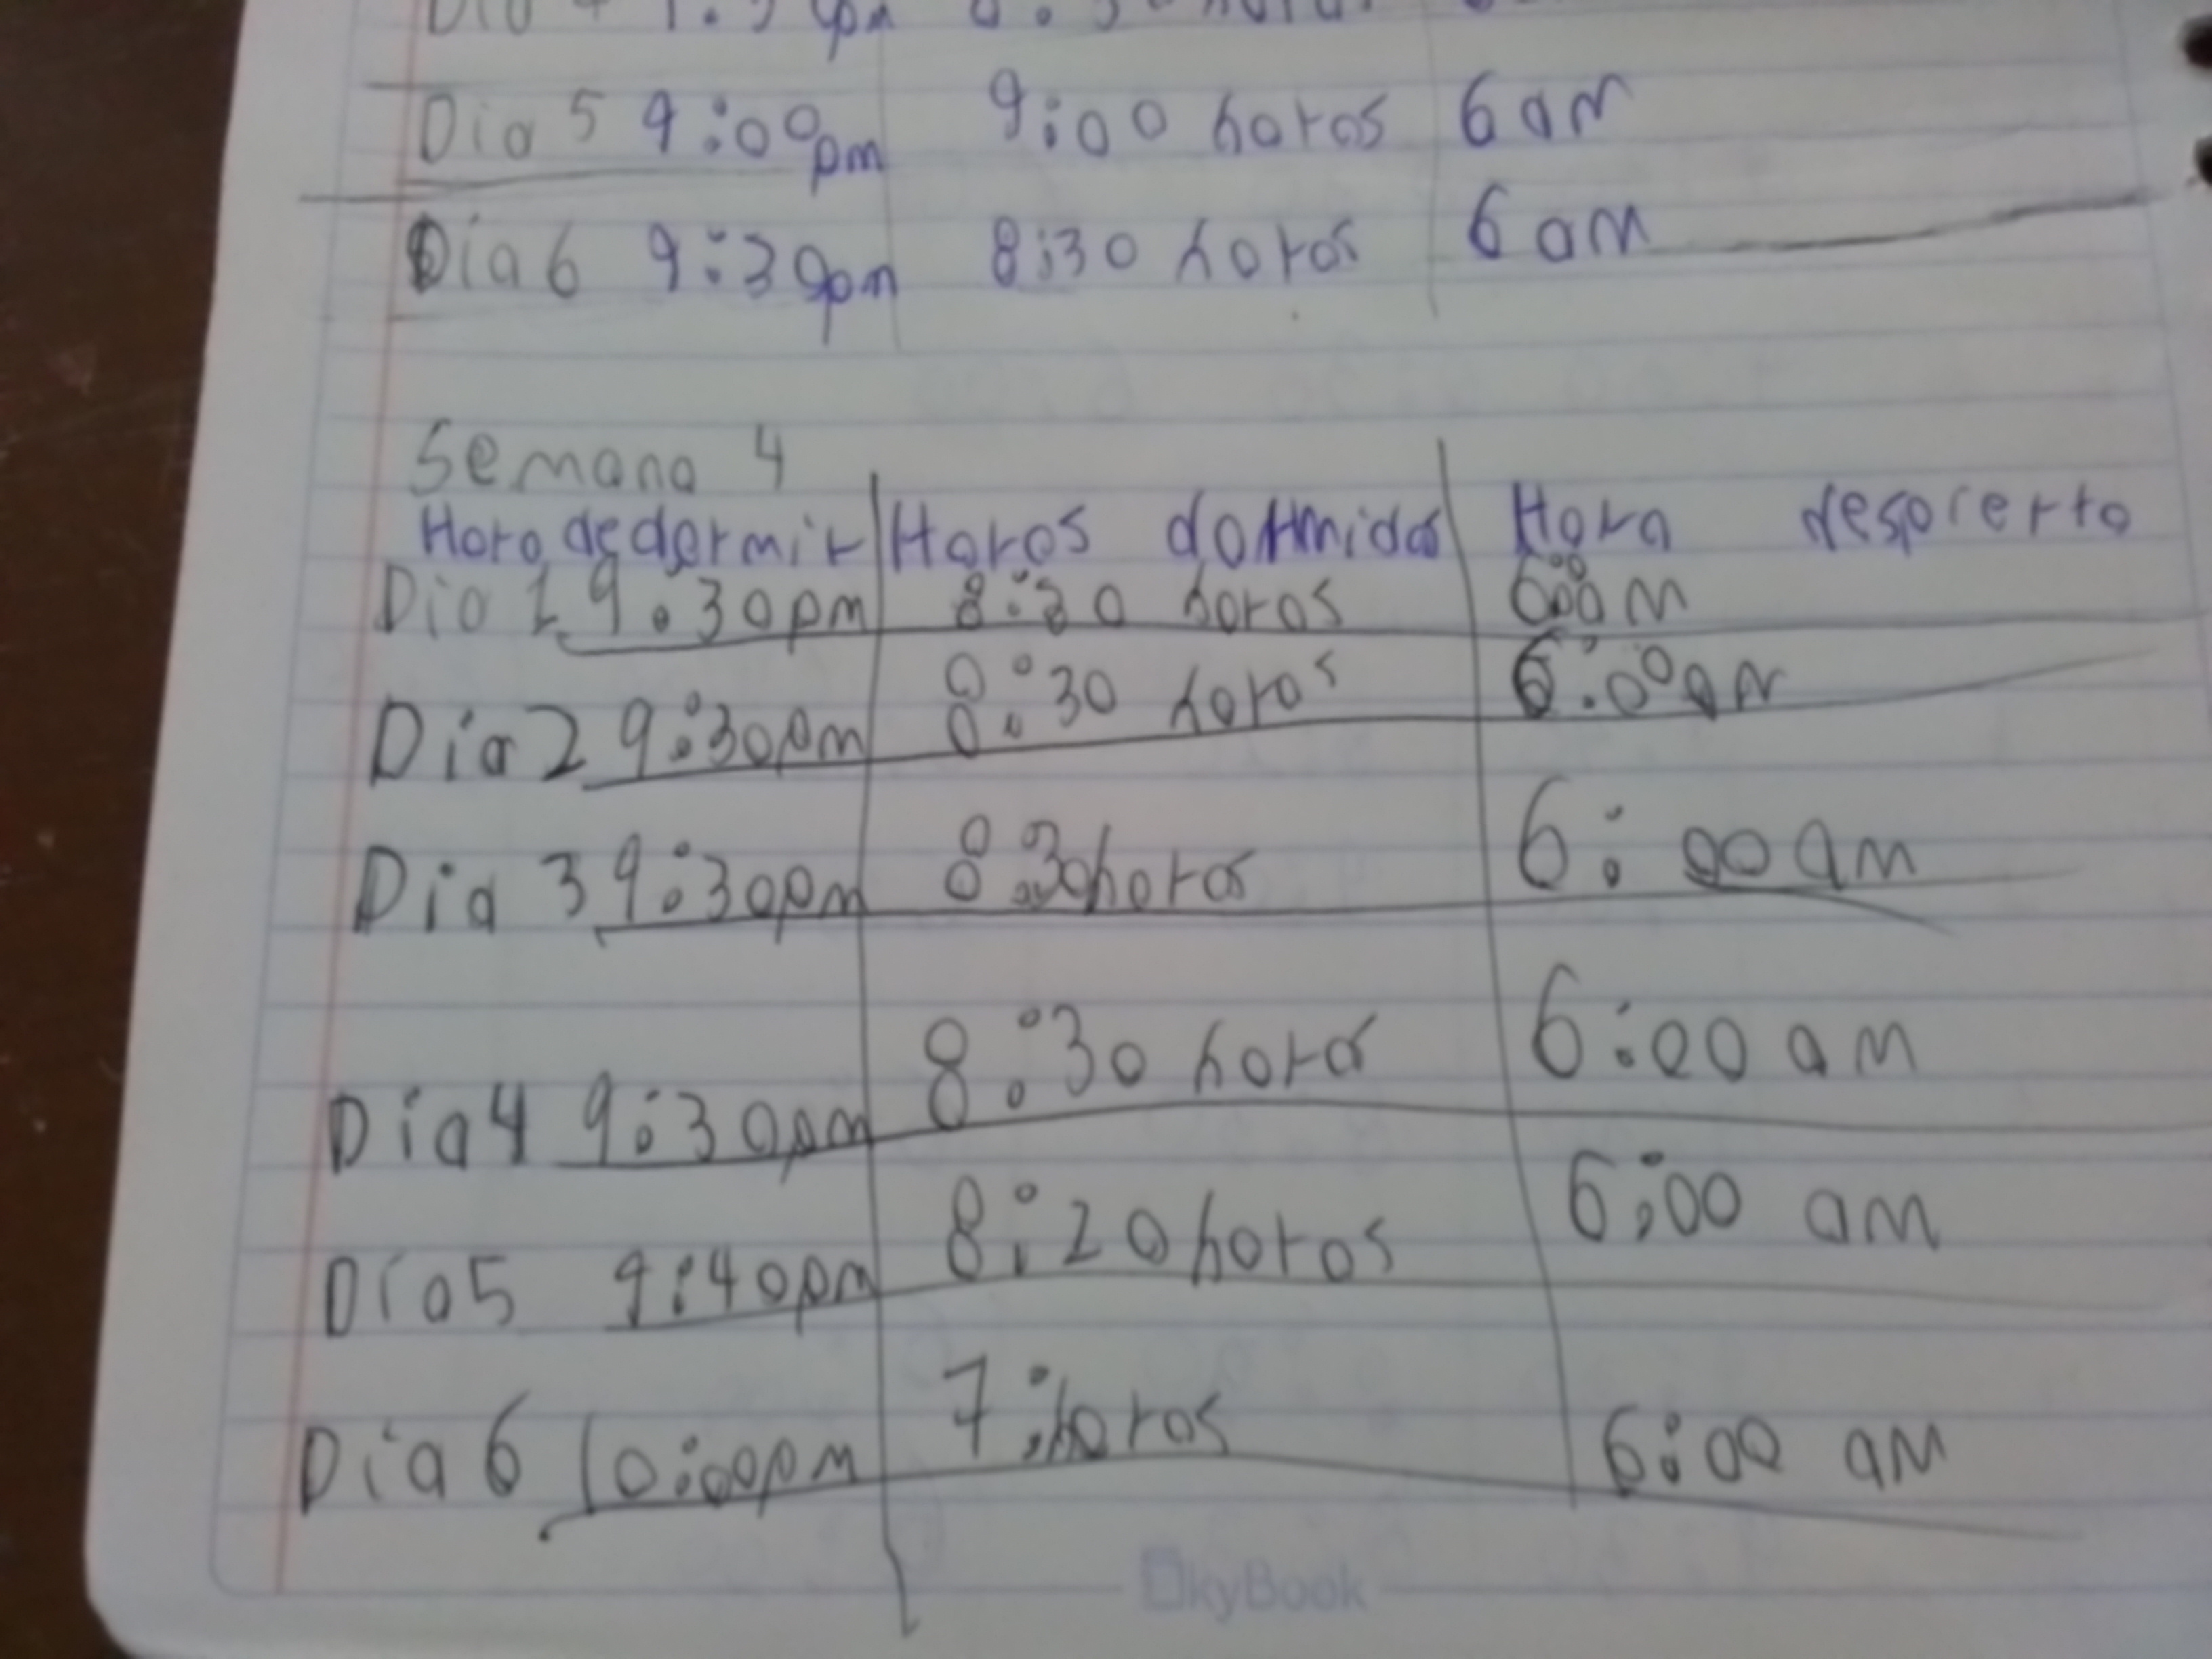 Dia 5 9:00pm 9:00 horas 6 am
Dia 6 9:30pm 8:30 horas 6 am
Semana 4
Hora de dormir Horas dormidas Hora despierto
Dia 1 9:30pm 8:30 horas 6:00am
Dia 2 9:30pm 8:30 horas 6:00am
Dia 3 9:30pm 8:30horas 6:00am
Dia 4 9:30pm 8:30 horas 6:00 am
Dia 5 9:40pm 8:20 horas 6:00 am
Dia 6 10:00pm 7:horas 6:00 am
SkyBook